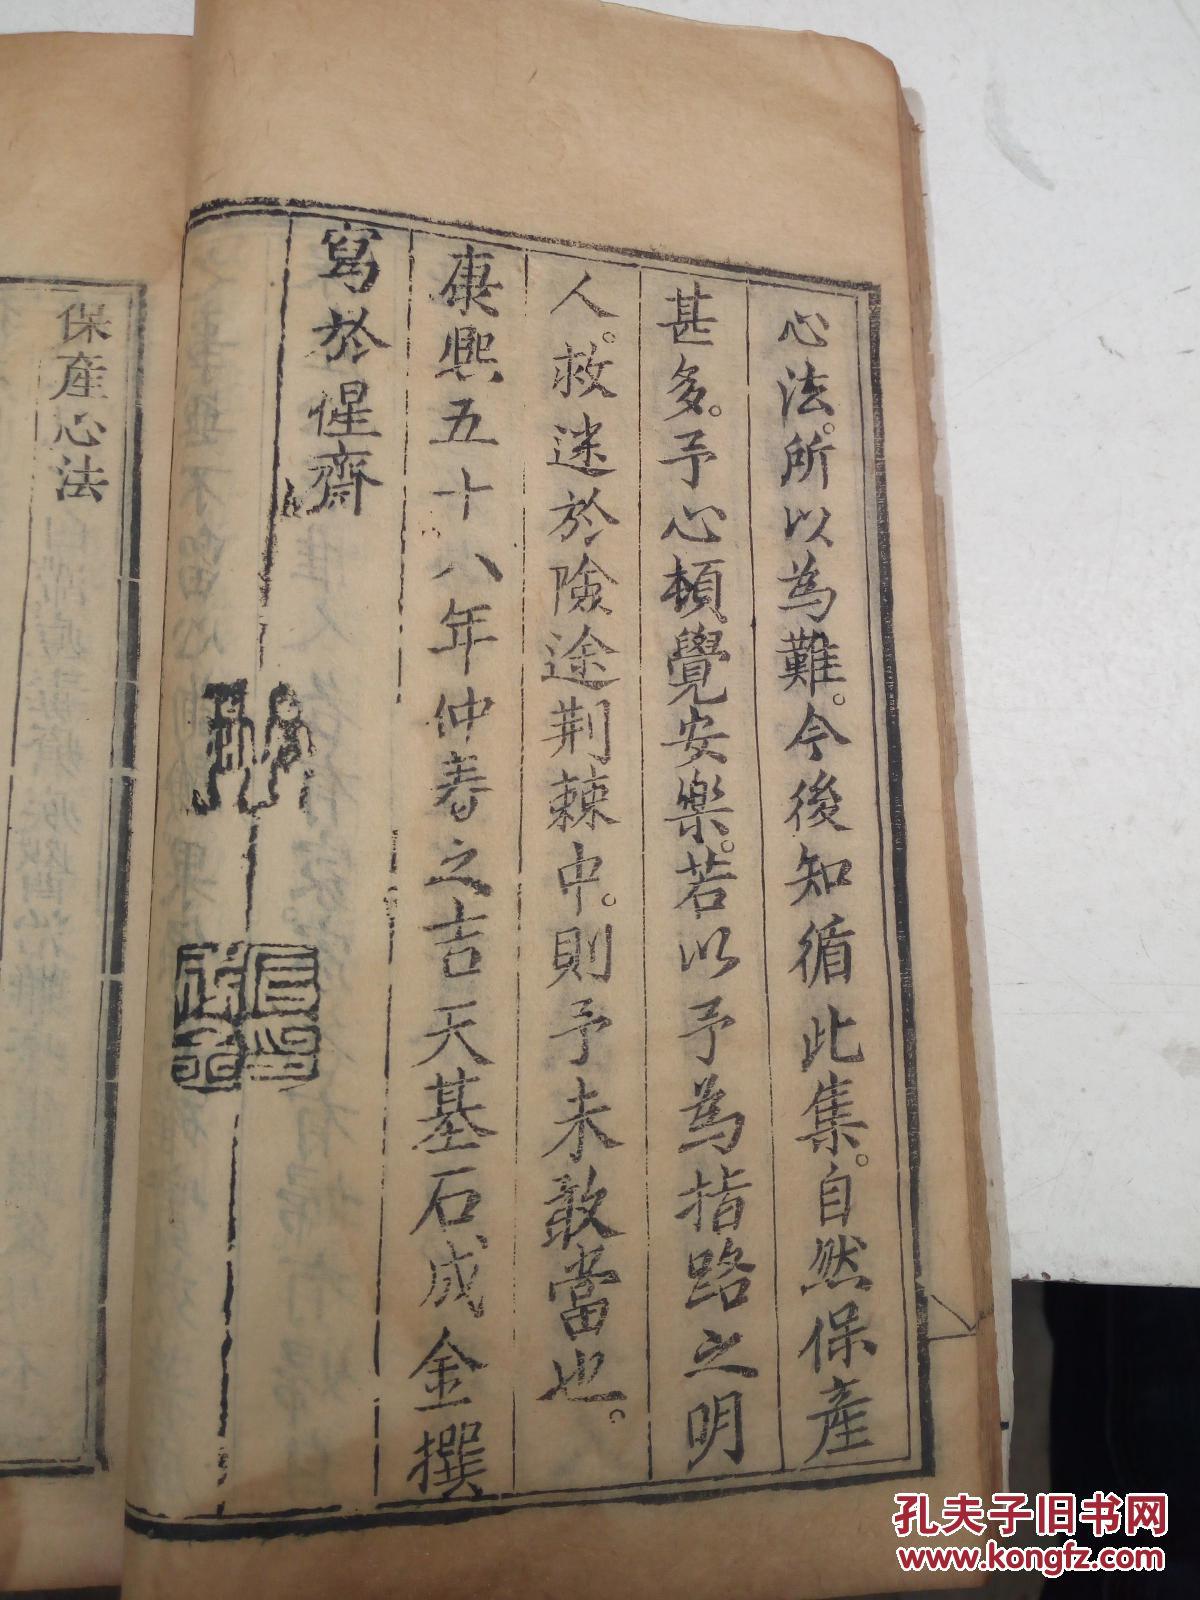 心法。所以為難。今後知循此集。自然保產
甚多。予心頓覺安樂。若以予為指路之明
人。救迷於險途荆棘中。則予未敢當也。
康熙五十八年仲春之吉天基石成金撰
寫於惺齋
保產心法
孔夫子旧书网
www.kongfz.com